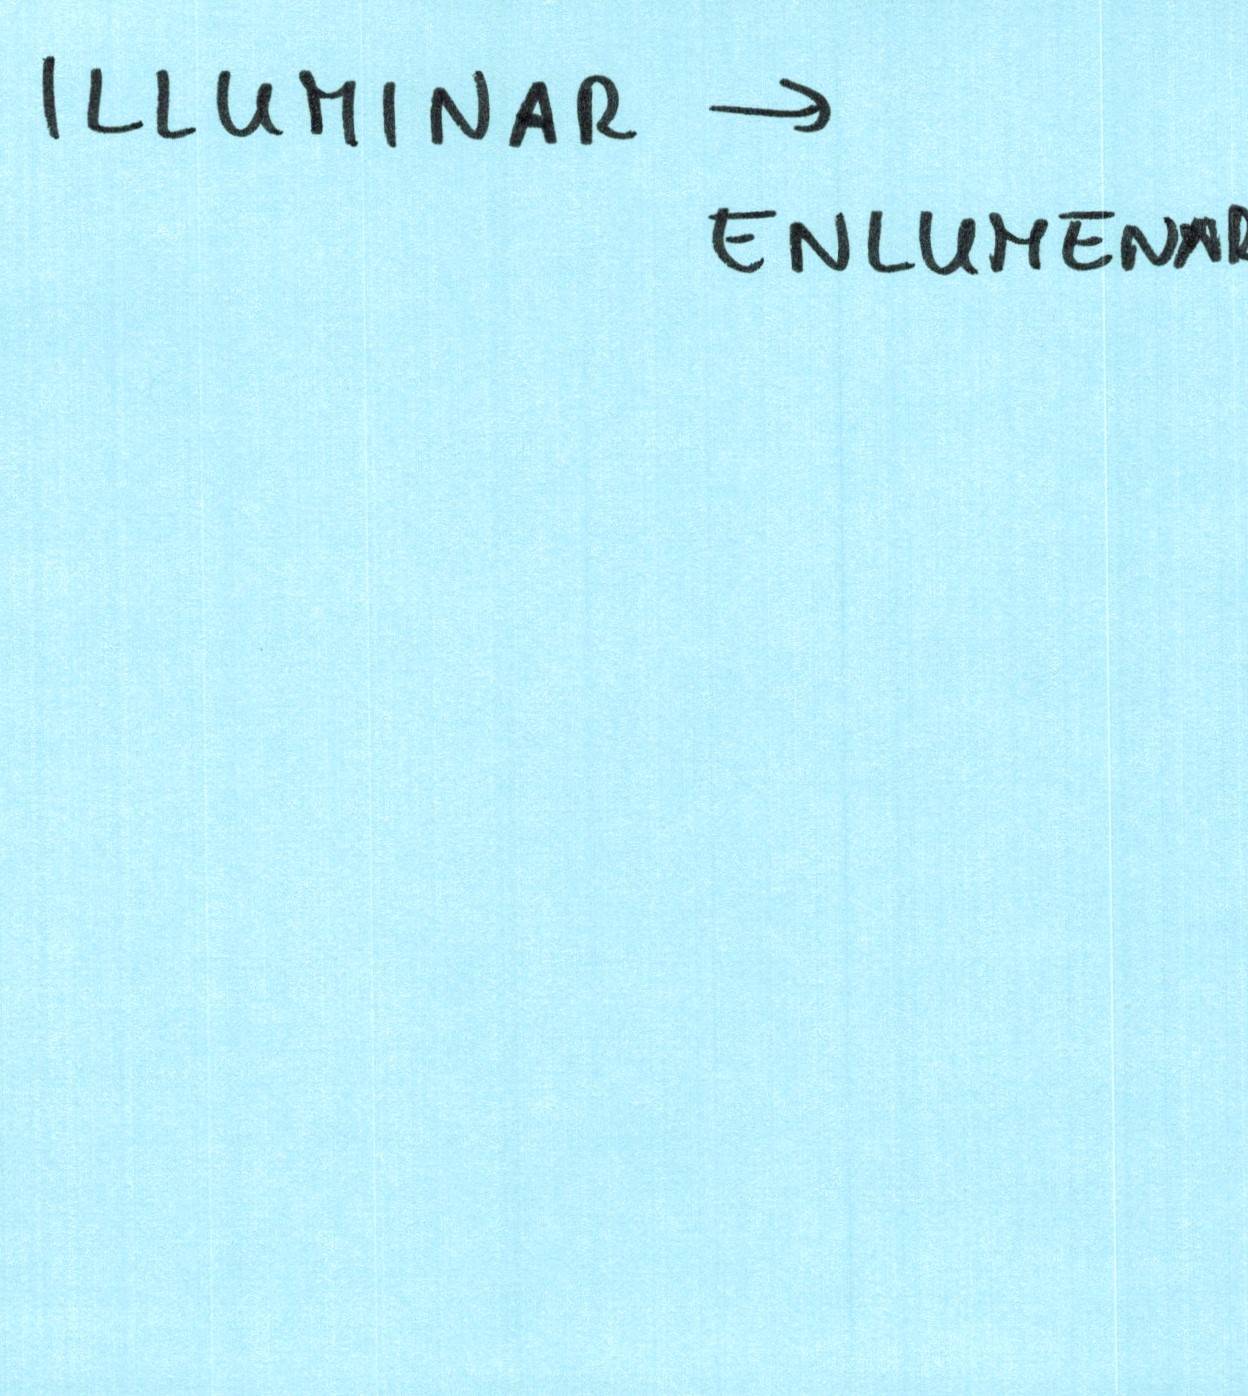 ILLUMINAR →
ENLUMENAR